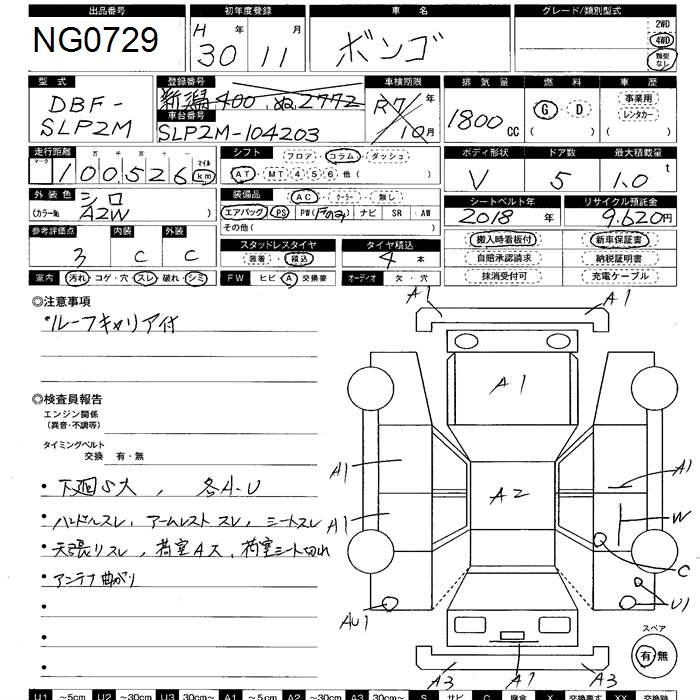 出品番号 初年度登録 車名 グレード/類別型式
NG0729 H30年 11月 ボンゴ 2WD
4WD
類型なし
型式 登録番号 車検期限 排気量 燃料 車歴
DBF-SLP2M 新潟 400 ぬ 2772 R7年10月 1800CC G・D ( ) 事業用 レンタカー ( )
車台番号
SLP2M-104203
走行距離 シフト フロア・コラム・ダッシュ ボディ形状 ドア数 最大積載量
マーク 十万 万 千 百 十 一 マイル
100526 km AT・MT 4 5 6 他( ) V 5 1.0t
外装色 装備品 AC・クーラー・無し シートベルト年式 リサイクル預託金
シロ
(カラー№ A2W ) エアバッグ PS PW(Fのみ) ナビ SR AW 2018年 9.620円
その他( )
参考評価点 内装 外装 スタッドレスタイヤ タイヤ積込 搬入時看板付 新車保証書
3 C C 装着・積込 4本 自賠承認請求 納税証明書
室内 汚れ コゲ・穴 スレ 破れ・シミ FW ヒビ A 交換要 オーディオ 欠・穴 抹消受付可 充電ケーブル
◎注意事項
・ルーフキャリア付
◎検査員報告
エンジン関係
(異音・不調等)
タイミングベルト
交換 有・無
・下廻りS大, 各A・U
・ハンドルスレ, アームレストスレ, シートスレ
・天張リスレ, 荷室A大, 荷室シート切れ
・アンテナ曲がり
A1 A1
A1
A1 A1
A2
A1 W
C
AU1 U1
A3 A1 A3
スペア
有・無
U1 ~5cm U2 ~30cm U3 30cm~ A1 ~5cm A2 ~30cm A3 30cm~ S サビ C 腐食 X 交換要す XX 交換跡